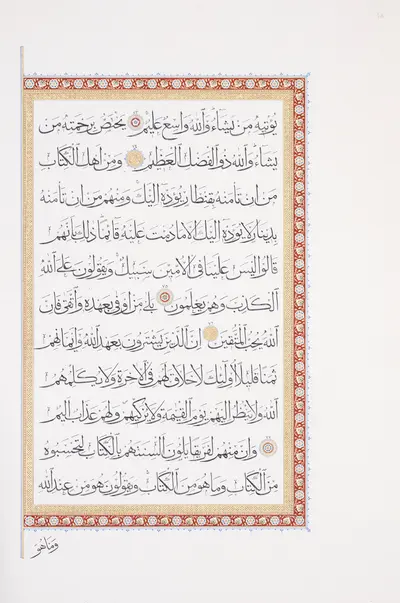 يؤتيه من يشاء والله واسع عليم يختص برحمته من
يشاء والله ذو الفضل العظيم ومن اهل الكتاب
من ان تامنه بقنطار يؤده اليك ومنهم من ان تامنه
بدينار لا يؤده اليك الا ما دمت عليه قائما ذلك بانهم
قالوا ليس علينا في الاميين سبيل ويقولون على الله
الكذب وهم يعلمون بلى من اوفى بعهده واتقى فان
الله يحب المتقين ان الذين يشترون بعهد الله وايمانهم
ثمنا قليلا اولئك لا خلاق لهم في الاخرة ولا يكلمهم
الله ولا ينظر اليهم يوم القيمة ولا يزكيهم ولهم عذاب اليم
وان منهم لفريقا يلون السنتهم بالكتاب لتحسبوه
من الكتاب وما هو من الكتاب ويقولون هو من عند الله
وما هو